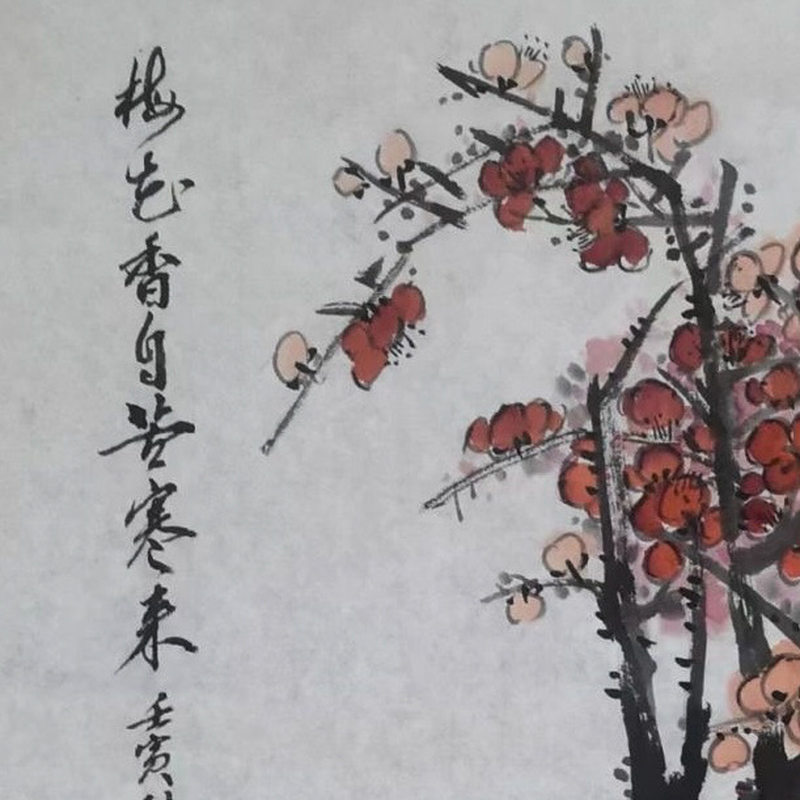 梅花香自苦寒来
壬寅